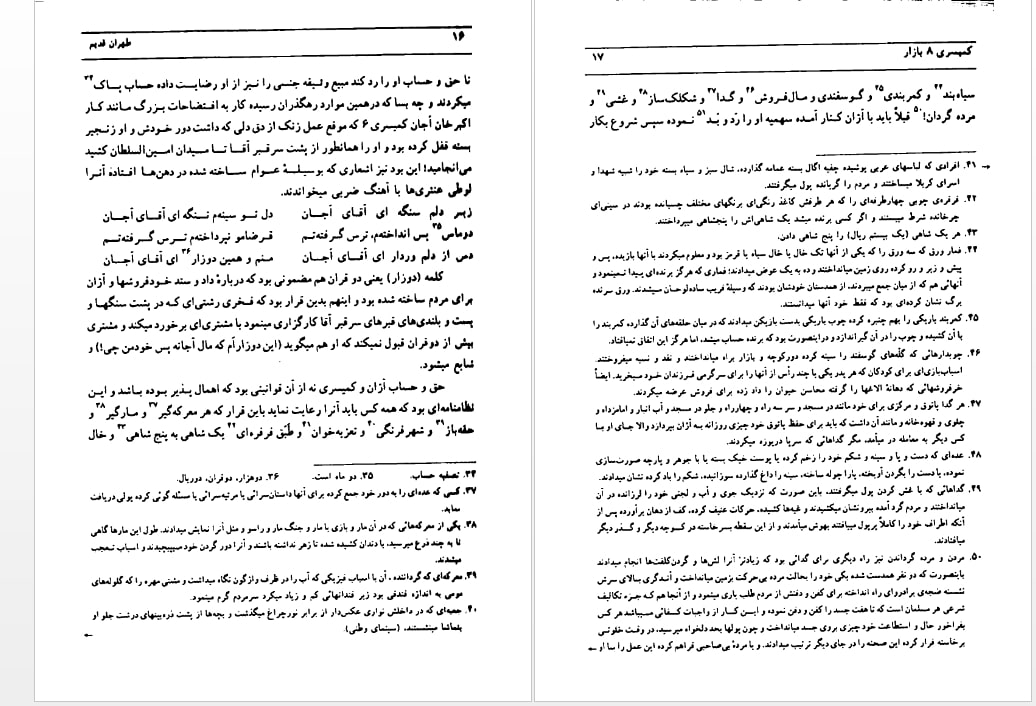 ۱۶
طهران قدیم
تا حق و حساب او را رد کند مبیع وثیقه جنسی را نیز از او رضایت داده حساب پاک۳۴
میکردند و چه بسا که درهمین موارد رهگذران رسیده کار به افتضاحات بزرگ مانند کار
اکبرخان آجان کمیسری ۶ که موقع عمل زنک از دق دلی که داشت دور خودش و او زنجیر
بسته قفل کرده بود و او را همانطور از پشت سرقبر آقا تا میدان امین‌السلطان کشید
می‌انجامید! این بود نیز اشعاری که بوسیلهٔ عوام ساخته شده در دهن‌ها افتاده آنرا
لوطی عنتری‌ها با آهنگ ضربی میخواندند.
زیر دلم سنگه ای آقای آجان دل تو سینه‌م تنگه ای آقای آجان
دوماس۳۵ پس انداخته‌م، ترس گرفته‌تم قرضامو نپرداخته‌م ترس گرفته‌تم
دس از دلم وردار ای آقای آجان منم و همین دوزار۳۶ ای آقای آجان
کلمه (دوزار) یعنی دو قران هم مضمونی بود که دربارهٔ داد و ستد خودفروشها و آژان
برای مردم ساخته شده بود و اینهم بدین قرار بود که فخری رشتی‌ای که در پشت سنگها و
پست و بلندی‌های قبرهای سرقبر آقا کارگزاری مینمود با مشتری‌ای برخورد میکند و مشتری
بیش از دوقران قبول نمیکند که او هم میگوید (این دوزارأم که مال آجانه پس خودمن چی!) و
شایع میشود.
حق و حساب آژان و کمیسری نه از آن قوانینی بود که اهمال پذیر بوده باشد و این
نظامنامه‌ای بود که همه کس باید آنرا رعایت نماید باین قرار که هر معرکه‌گیر۳۷ و مارگیر۳۸ و
حقه‌باز۳۹ و شهرفرنگی۴۰ و تعزیه‌خوان۴۱ و طبق فرفره‌ای۴۲ یک شاهی به پنج شاهی۴۳ و خال
۳۴. تصفیه حساب. ۳۵. دو ماه است. ۳۶. دوهزار، دوقران، دوریال.
۳۷. کسی که عده‌ای را به دور خود جمع کرده برای آنها داستان‌سرائی یا مرثیه‌سرائی یا مسئله گوئی کرده پولی دریافت
نماید.
۳۸. یکی از معرکه‌هائی که در آن مار و بازی با مار و جنگ مار و راسو و مثل آنرا نمایش میدادند. طول این مارها گاهی
تا به چند ذرع میرسید، با دندان کشیده شده تا زهر نداشته باشند و آنرا دور گردن خود میپیچیدند و اسباب تعجب
میشدند.
۳۹. معرکه‌ای که گرداننده، آن با اسباب فیزیکی که آب را در ظرف واژگون نگاه میداشت و مشتی مهره را که گلوله‌های
مومی به اندازه فندقی بود زیر فنداقهائی کم و زیاد میکرد سرمردم گرم مینمود.
۴۰. جعبه‌ای که در داخلش نواری عکس‌دار از برابر نورچراغ میگذشت و بچه‌ها از پشت ذره‌بینهای درشت جلو او
بتماشا مینشستند، (سینمای وطنی).
←
کمیسری ۸ بازار
۱۷
سیاه‌بند۴۴ و کمربندی۴۵ و گوسفندی و مال‌فروش۴۶ و گدا۴۷ و شکلک‌ساز۴۸ و غشی۴۹ و
مرده گردان!۵۰ قبلاً باید با آژان کنار آمده سهمیه او را رَد و بُد۵۱ نموده سپس شروع بکار
→
۴۱. افرادی که لباسهای عربی پوشیده چفیه اگال بسته عمامه گذارده، شال سبز و سیاه بسته خود را شبیه شهدا و
اسرای کربلا میساختند و مردم را گریانده پول میگرفتند.
۴۲. فرفره‌ی چوبی چهارطرفه‌ای را که هر طرفش کاغذ رنگی‌ای برنگهای مختلف چسبانده بودند در سینی‌ای
چرخانده شرط میبستند و اگر کسی برنده میشد یک شاهی‌اش را پنجشاهی میپرداختند.
۴۳. هر یک شاهی (یک بیستم ریال) را پنج شاهی دادن.
۴۴. قمار ورق که سه ورق را که یکی از آنها تک خال یا خال سیاه یا قرمز بود و معلوم میکردند با آنها بازیده، پس و
پیش و زیر و رو کرده روی زمین میانداختند و ده به یک عوض میدادند؛ قماری که هرگز برنده‌ای پیدا نمینمود و
آنهائی هم که از میان جمع میبردند، از همدستان خودشان بودند که وسیلهٔ فریب ساده‌لوحان میشدند. ورق سرنده
برگ نشان کرده‌ای بود که فقط خود آنها میدانستند.
۴۵. کمربند باریکی را بهم چنبره کرده چوب باریکی بدست بازیکن میدادند که در میان حلقه‌های آن گذارده کمربند را
با آن کشیده و چوب را در آن گیر اندازد و دراینصورت بود که برنده حساب میشد، اما هرگز این اتفاق نمیافتاد.
۴۶. چوبدارهائی که گلّه‌های گوسفند را سینه کرده دورکوچه و بازار براه میانداختند و نقد و نسیه میفروختند.
اسباب‌بازی‌ای برای کودکان که هر پدر یکی یا چند رأس از آنها را برای سرگرمی فرزندان خود میخرید. ایضاً
خرفروشهائی که دهانهٔ الاغها را گرفته محاسن حیوان را داد زده برای فروش عرضه میکردند.
۴۷. هر گدا پاتوق و مرکزی برای خود مانند در مسجد و سر سه راه و چهارراه و جلو در مسجد و آب انبار و امامزداه و
چلوی و قهوه‌خانه و مانند آن داشت که باید برای حفظ پاتوق خود چیزی روزانه به آژان بپردازد والا جای او با
کس دیگر به معامله در میآمد، مگر گداهائی که سرپا دریوزه میکردند.
۴۸. عده‌ای که دست و پا و سینه و شکم خود را زخم کرده یا پوست خیک بسته یا با جوهر و پارچه صورت‌سازی
نموده، یا دست را بگردن آویخته، پارا چوله ساخته، سینه را داغ گذارده سوزانیده، شکم را باد کرده نشان میدادند.
۴۹. گداهائی که با غش کردن پول میگرفتند، باین صورت که نزدیک جوی و آب و لجنی خود را لرزانده در آن
میانداختند و مردم گرد آمده بیرونشان میکشیدند و غیه‌ها کشیده، حرکات عنیف کرده، کف از دهان برآورده پس از
آنکه اطراف خود را کاملاً پرپول مییافتند بهوش میآمدند و از این سقطه برخاسته در کوچه دیگر و گذر دیگر
میافتادند.
۵۰. مردن و مرده گرداندن نیز راه دیگری برای گدائی بود که زیادتر آنرا لش‌ها و گردن‌کلفت‌ها انجام میدادند
باینصورت که دو نفر همدست شده یکی خود را بحالت مرده بی‌حرکت بزمین میانداخت و آندگری بالای سرش
نشسته ضجه‌ی برادروای راه انداخته برای کفن و دفنش از مردم طلب یاری مینمود و از آنجا هم که جزء تکالیف
شرعی هر مسلمان است که تا هفت جسد را کفن و دفن نموده و این کار از واجبات کفائی میباشد هر کس
بفراخور حال و استطاعت خود چیزی بروی جسد میانداخت و چون پولها بحد دلخواه میرسید، در وقت خلوتی
برخاسته فرار کرده این صحنه را در جای دیگر ترتیب میدادند. و یا مردهٔ بی‌صاحبی فراهم کرده این عمل را سا او ←